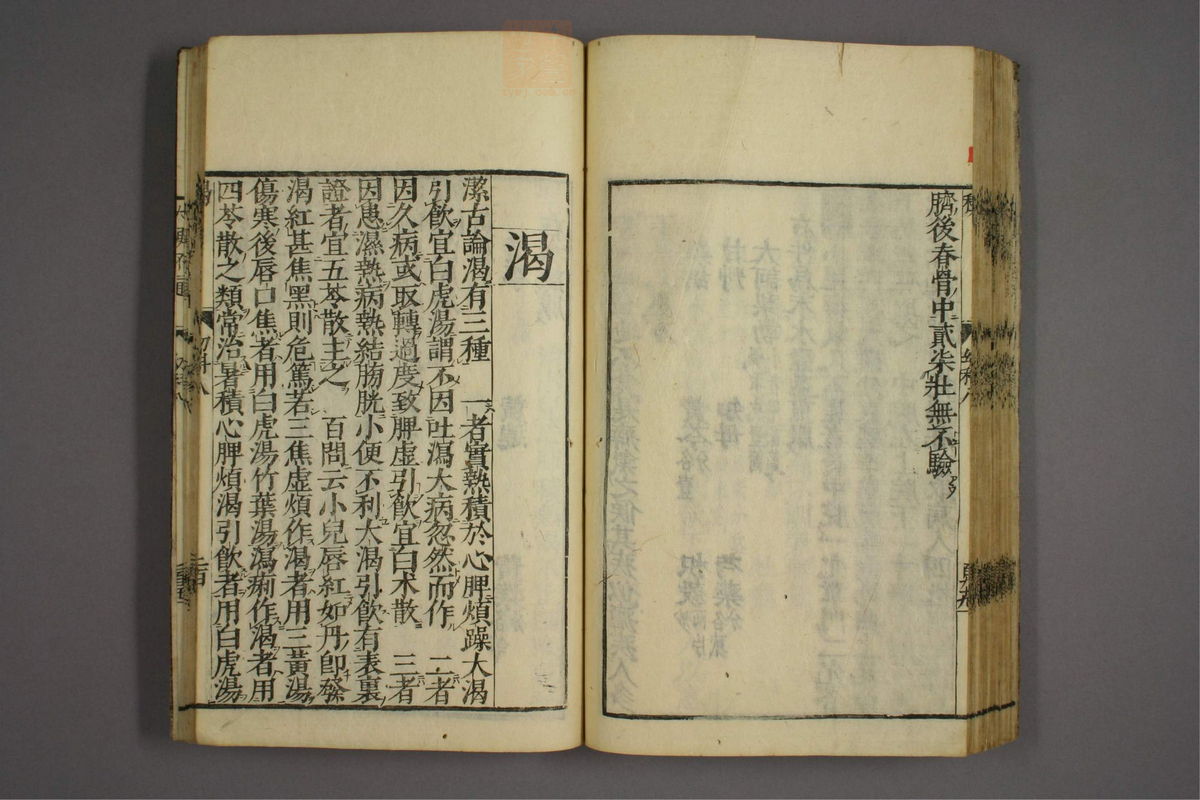 臍後脊骨中貳柒壯無不驗
渴
潔古論渴有三種　一者實熱積於心脾煩躁大渴
引飲宜白虎湯謂不因吐瀉大病忽然而作　二者
因久病或取轉過度致脾虛引飲宜白术散　三者
因患濕熱病熱結膀胱小便不利大渴引飲有表裏
證者宜五苓散主之　百問云小兒唇紅如丹卽發
渴紅甚焦黑則危篤若三焦虛煩作渴者用三黃湯
傷寒後唇口焦者用白虎湯竹葉湯瀉痢作渴者用
四苓散之類常治暑積心脾煩渴引飲者用白虎湯